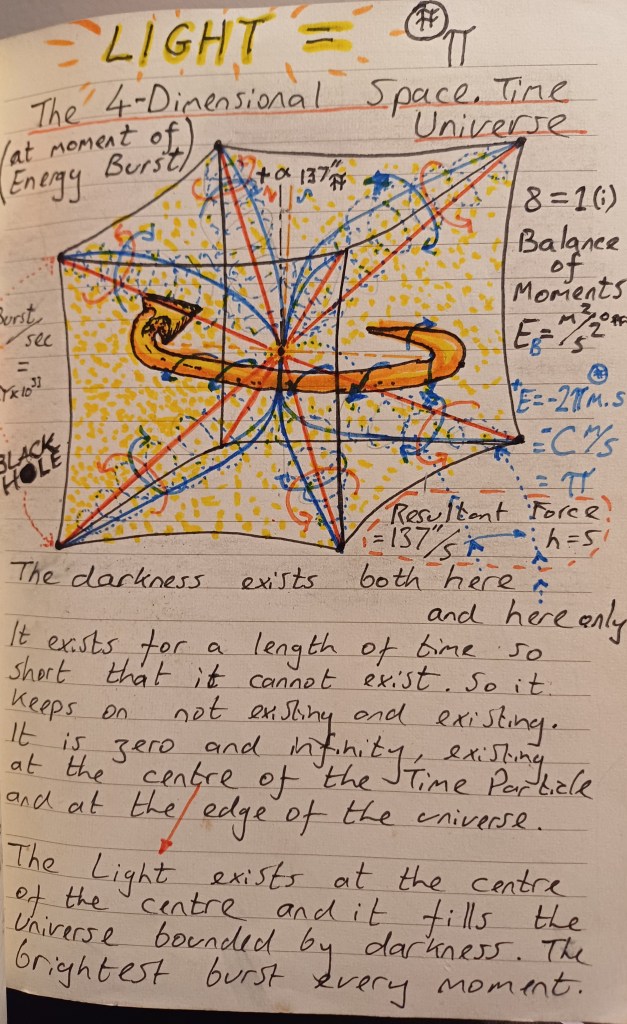 LIGHT = π
The 4-Dimensional Space.Time
Universe
(at moment of)
Energy Burst)
+α 137"
8 = 1(i)
Balance
of
Moments
Burst/
sec
=
BLACK
HOLE
+E=-2πm.s
= C m/s
= π
Resultant Force
= 137"/s h=s
The darkness exists both here
and here only
It exists for a length of time so
short that it cannot exist. So it
keeps on not existing and existing.
It is zero and infinity, existing
at the centre of the Time Particle
and at the edge of the universe.
The Light exists at the centre
of the centre and it fills the
Universe bounded by darkness. The
brightest burst every moment.